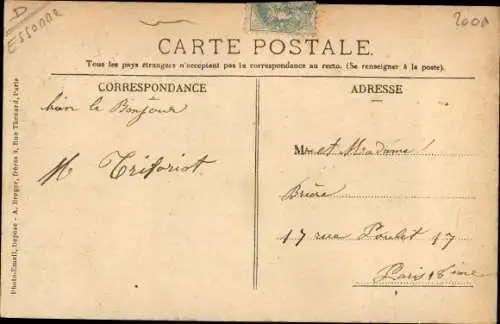 D
ESSONNE
200A
CARTE POSTALE.
Tous les pays étrangers n'acceptent pas la correspondance au recto. (Se renseigner à la poste).
CORRESPONDANCE
le Bonjour
M Triforiot
ADRESSE
M et Madame
Brière
17 rue Poulet 17
Paris 18 ème
Photo-Email, Déposé - A. Breger, frères 9, Rue Thénard, Paris